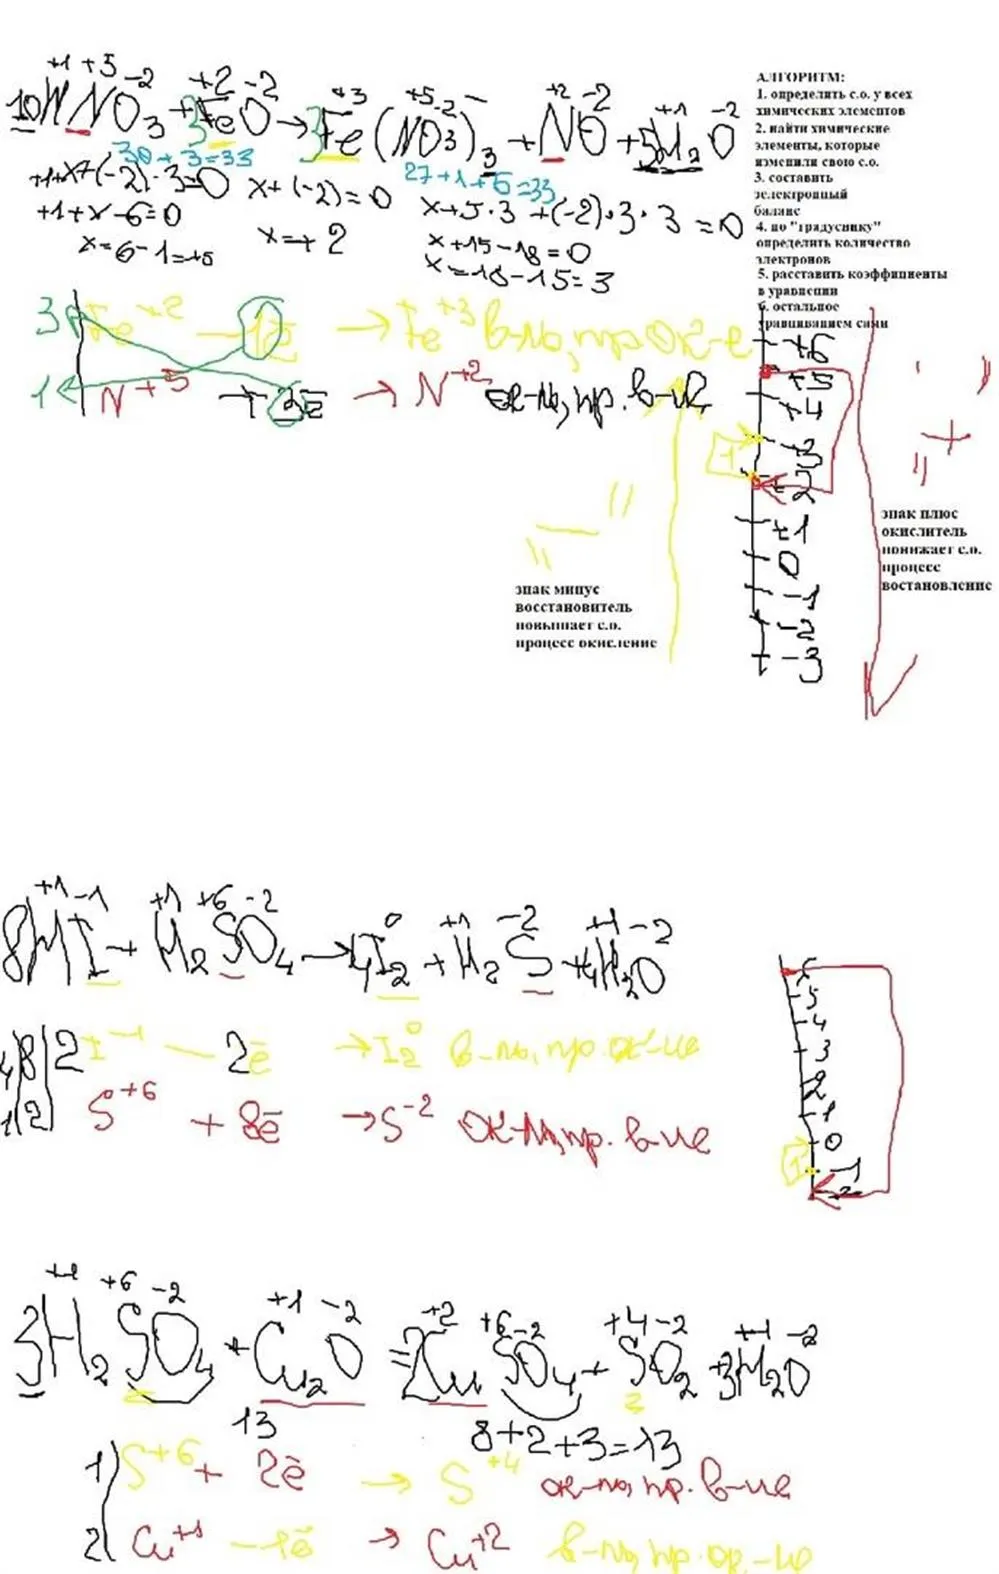 +1 +5 -2 +2 -2 +3 +5 -2 +2 -2 +1 -2
10HNO3 + 3FeO → 3Fe(NO3)3 + NO + 5H2O
30 + 3 = 33 27+1+5=33
+1+x+(-2)·3=0 x+(-2)=0 x+5·3+(-2)·3·3=0
+1+x-6=0 x=+2 x+15-18=0
x=6-1=+5 x=18-15=3
АЛГОРИТМ:
1. определить с.о. у всех
химических элементов
2. найти химические
элементы, которые
изменили свою с.о.
3. составить
электронный
баланс
4. по "градуснику"
определить количество
электронов
5. расставить коэффициенты
в уравнении
6. остальное
уравниванием сами
3 Fe+2 - 1ē → Fe+3 в-ль, пр. ок-е
1 N+5 + 3ē → N+2 ок-ль, пр. в-ия
+6
+5
+4
+3
+2
+1
0
-1
-2
-3
1
" - "
" + "
знак минус
восстановитель
повышает с.о.
процесс окисление
знак плюс
окислитель
понижает с.о.
процесс
востановление
+1 -1 +1 +6 -2 0 +1 -2 +1 -2
8HI + H2SO4 → 4I2 + H2S + 4H2O
4 8 2I-1 - 2ē → I2 0 в-ль, пр. ок-ие
1 2 S+6 + 8ē → S-2 ок-ль, пр. в-ие
6
5
4
3
2
1
0
-1
-2
1
+1 +6 -2 +1 -2 +2 +6 -2 +4 -2 +1 -2
3H2SO4 + Cu2O = 2CuSO4 + SO2 + 3H2O
13 8+2+3=13
1 S+6 + 2ē → S+4 ок-ль, пр. в-ие
2 Cu+1 - 1ē → Cu+2 в-ль, пр. ок-ие